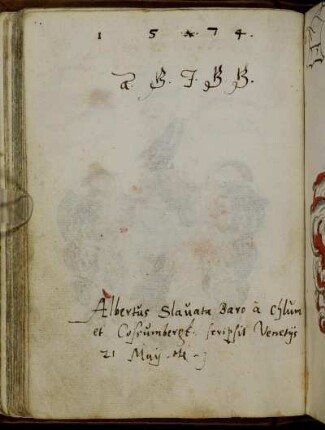 1 5 * 7 4.
a. B. J. B B.
Albertus Slauata Baro à Chlum
et Cossumbergk scripsit Venetijs
21 Maij etc